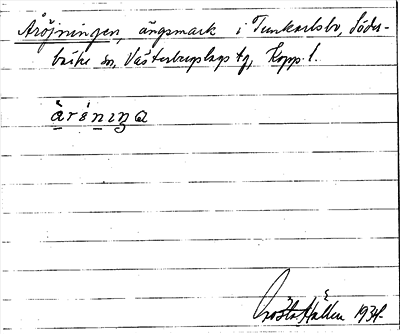 Aröjningen, ängsmark i Tunkarlsbo, Söder-
bärke sn, Västerbergslags tg, Kopp. l.
åröniŋa
Gösta Hållen 1934.